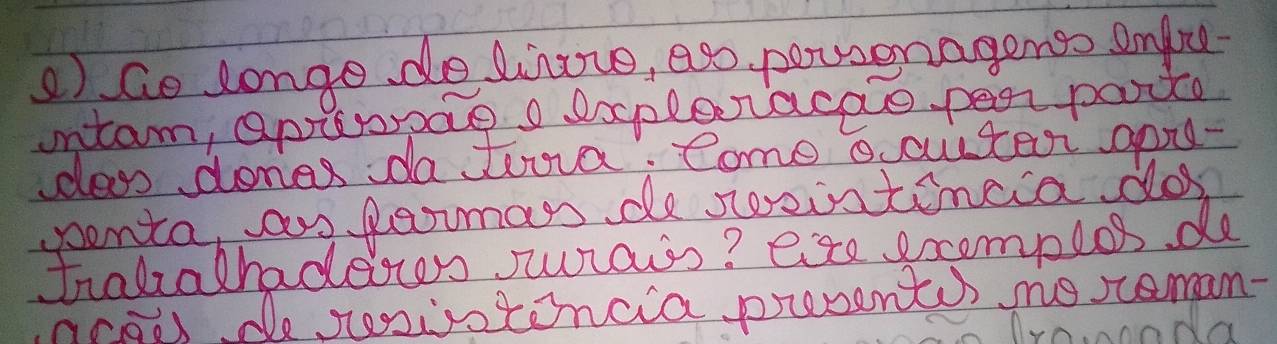 e) Ao longo do livro, os personagens enfre-
ntam, opressão e exploração por parte
dos donos da terra. Como o autor apre-
senta, as formas de resistência dos
trabalhadores rurais? Cite exemplos de
ações de resistência presentes no roman-